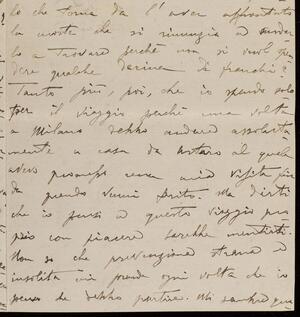 lo che torna da l'aver affrontato
la morte che si rinunzia ad andar
lo a trovare perchè non si vuol per
dere qualche decina di franchi?
Tanto più, poi, che io spendo solo
per il viaggio perchè una volta
a Milano debbo andare assoluta
mente a casa da Notaro al quale
avevo promesso una mia visita fin
da quando venni Ma dirti
che io penso a questo viaggio pro
prio con piacere sarebbe mentirti.
Non so che prevenzione strana e
insolita mi prende ogni volta che io
penso che debbo partire. Mi sembra qua